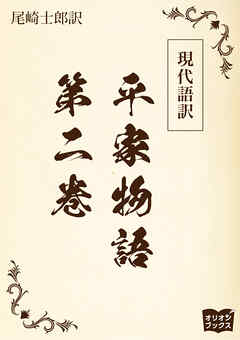 尾崎士郎訳
現代語訳
平家物語
第二巻
オリオン
ブックス